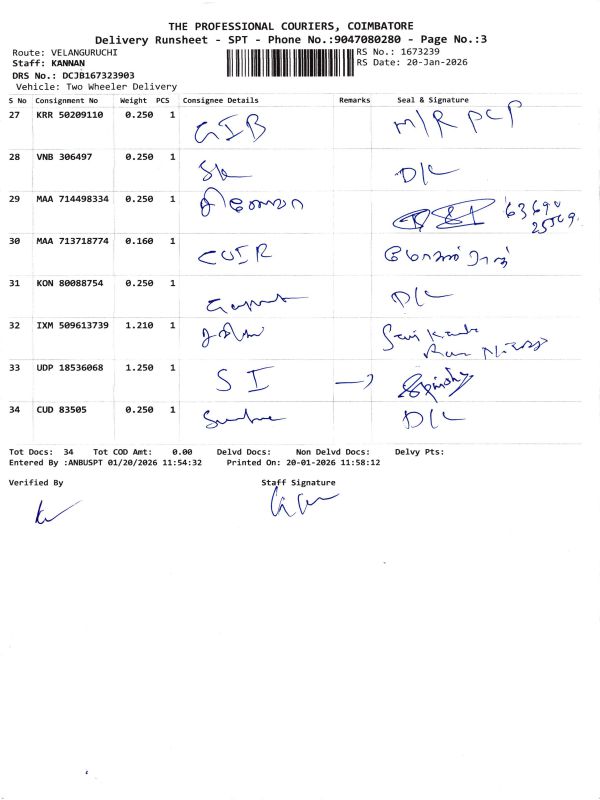 THE PROFESSIONAL COURIERS, COIMBATORE
Delivery Runsheet - SPT - Phone No.:9047080280 - Page No.:3
Route: VELANGURUCHI RS No.: 1673239
Staff: KANNAN RS Date: 20-Jan-2026
DRS No.: DCJB167323903
Vehicle: Two Wheeler Delivery
S No Consignment No Weight PCS Consignee Details Remarks Seal & Signature
27 KRR 50209110 0.250 1 GIB M/R PCP
28 VNB 306497 0.250 1 D/L
29 MAA 714498334 0.250 1 63690
25569
30 MAA 713718774 0.160 1 CUIR
31 KON 80088754 0.250 1 D/L
32 IXM 509613739 1.210 1
33 UDP 18536068 1.250 1 SI
34 CUD 83505 0.250 1 D/L
Tot Docs: 34 Tot COD Amt: 0.00 Delvd Docs: Non Delvd Docs: Delvy Pts:
Entered By :ANBUSPT 01/20/2026 11:54:32 Printed On: 20-01-2026 11:58:12
Verified By Staff Signature